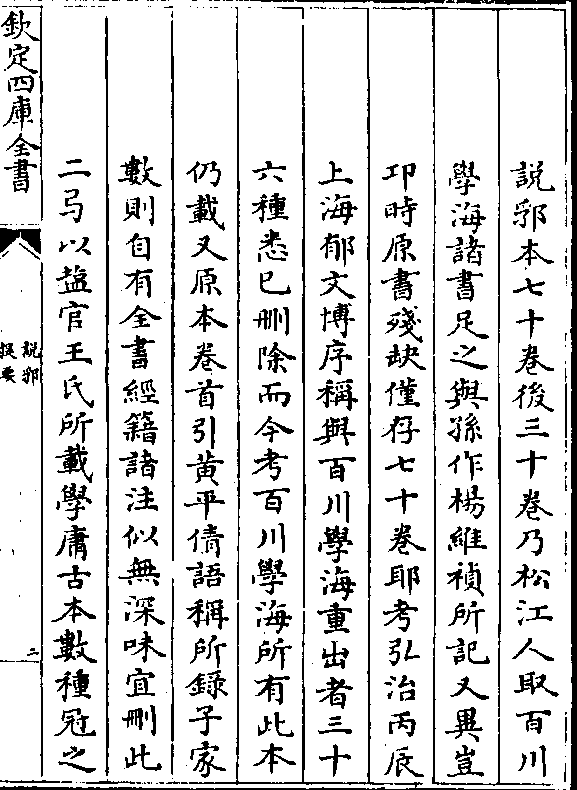 說郛本七十卷後三十卷乃松江人取百川
學海諸書足之與孫作楊維禎所記又異豈
卭時原書殘缺僅存七十卷耶考弘治丙辰
上海郁文博序稱與百川學海重出者三十
六種悉已刪除而今考百川學海所有此本
仍載又原本卷首引黄平倩語稱所錄子家
數則自有全書經籍諸注似無深味宜刪此
二弓以塩官王氏所載學庸古本數種冠之
欽定四庫全書
說郛
提要
二